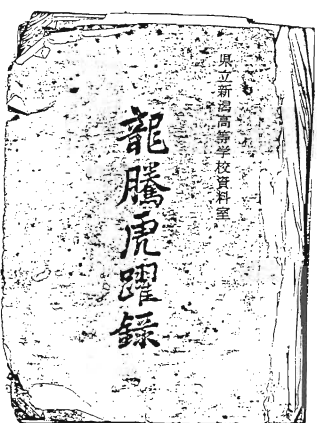 県立新潟高等学校資料室
龍騰虎躍録